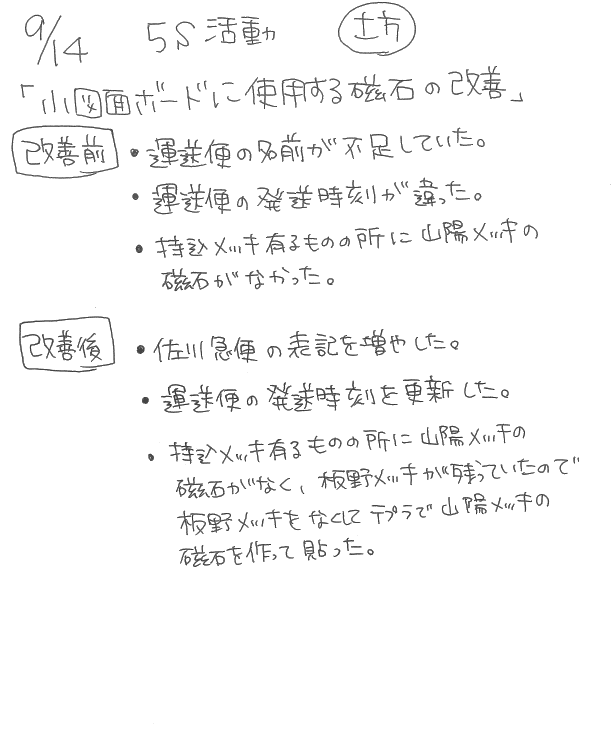 9/14 5S活動 土方
「小図面ボードに使用する磁石の改善」
改善前 ・運送便の名前が不足していた。
・運送便の発送時刻が違った。
・持込メッキ有るものの所に山陽メッキの
磁石がなかった。
改善後 ・佐川急便の表記を増やした。
・運送便の発送時刻を更新した。
・持込メッキ有るものの所に山陽メッキの
磁石がなく、板野メッキが残っていたので
板野メッキをなくしてテプラで山陽メッキの
磁石を作って貼った。